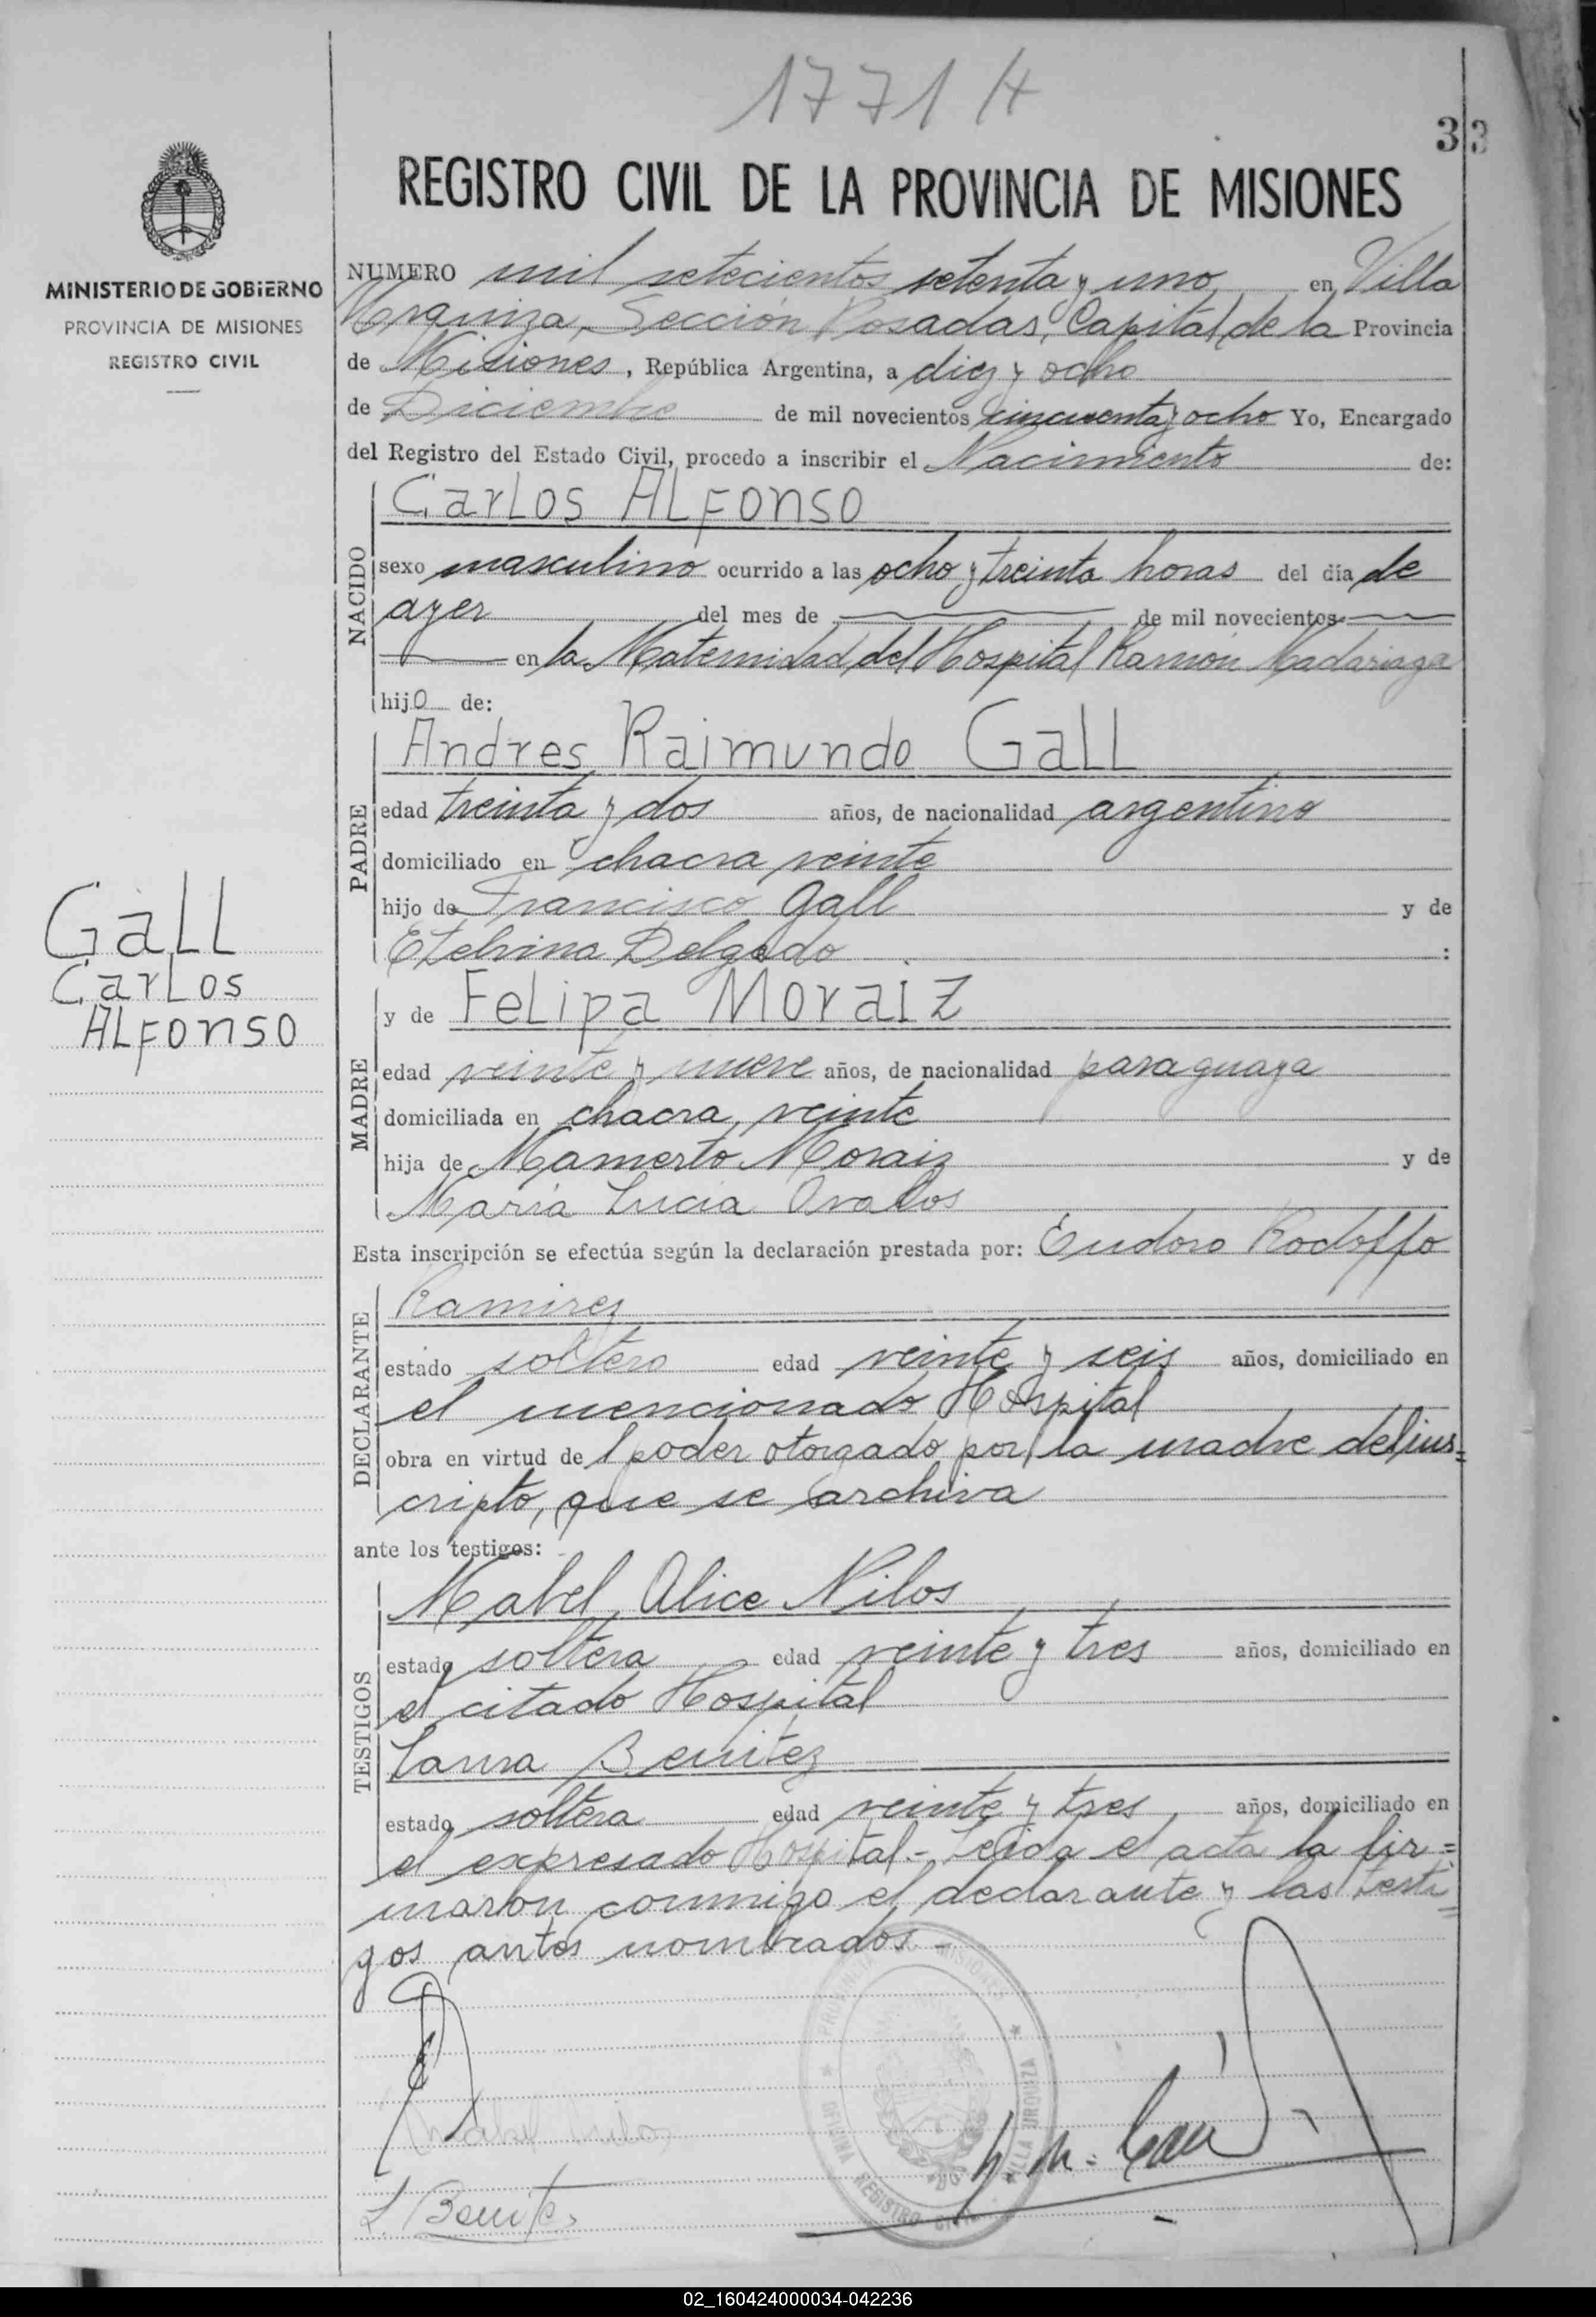 1771 H
33
MINISTERIO DE GOBIERNO
PROVINCIA DE MISIONES
REGISTRO CIVIL
REGISTRO CIVIL DE LA PROVINCIA DE MISIONES
NUMERO mil setecientos setenta y uno en Villa
Urquiza, Sección Posadas, Capital de la Provincia
de Misiones, República Argentina, a diez y ocho
de Diciembre de mil novecientos cincuenta y ocho Yo, Encargado
del Registro del Estado Civil, procedo a inscribir el Nacimiento de:
NACIDO
Carlos Alfonso
sexo masculino ocurrido a las ocho y treinta horas del día de
ayer del mes de de mil novecientos
en la Maternidad del Hospital Ramón Madariaga
hijo de:
PADRE
Andres Raimundo Gall
edad treinta y dos años, de nacionalidad argentino
domiciliado en chacra veinte
hijo de Francisco Gall y de
Etelvina Delgado :
Gall
Carlos
Alfonso
MADRE
y de Felipa Moraiz
edad veinte y nueve años, de nacionalidad paraguaya
domiciliada en chacra veinte
hija de Mamerto Moraiz y de
María Lucia Ovalos
Esta inscripción se efectúa según la declaración prestada por: Eudoro Rodolfo
DECLARANTE
Ramirez
estado soltero edad veinte y seis años, domiciliado en
el mencionado Hospital
obra en virtud del poder otorgado por la madre del ins=
cripto, que se archiva
ante los testigos:
TESTIGOS
Mabel Alice Nilos
estado soltera edad veinte y tres años, domiciliado en
el citado Hospital
Laura Benitez
estado soltera edad veinte y tres años, domiciliado en
el expresado Hospital - Leida el acta la fir=
maron conmigo el declarante y las testi=
gos antes nombrados.-
PROVINCIA MISIONES
OFICINA REGISTRO CIVIL
VILLA URQUIZA
Mabel Nilos
L. Benitez
02_160424000034-042236